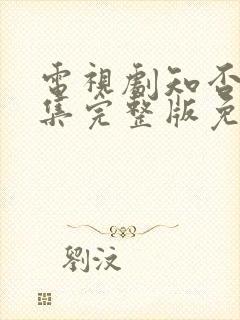 電視劇知否
集完整版免
劉汶